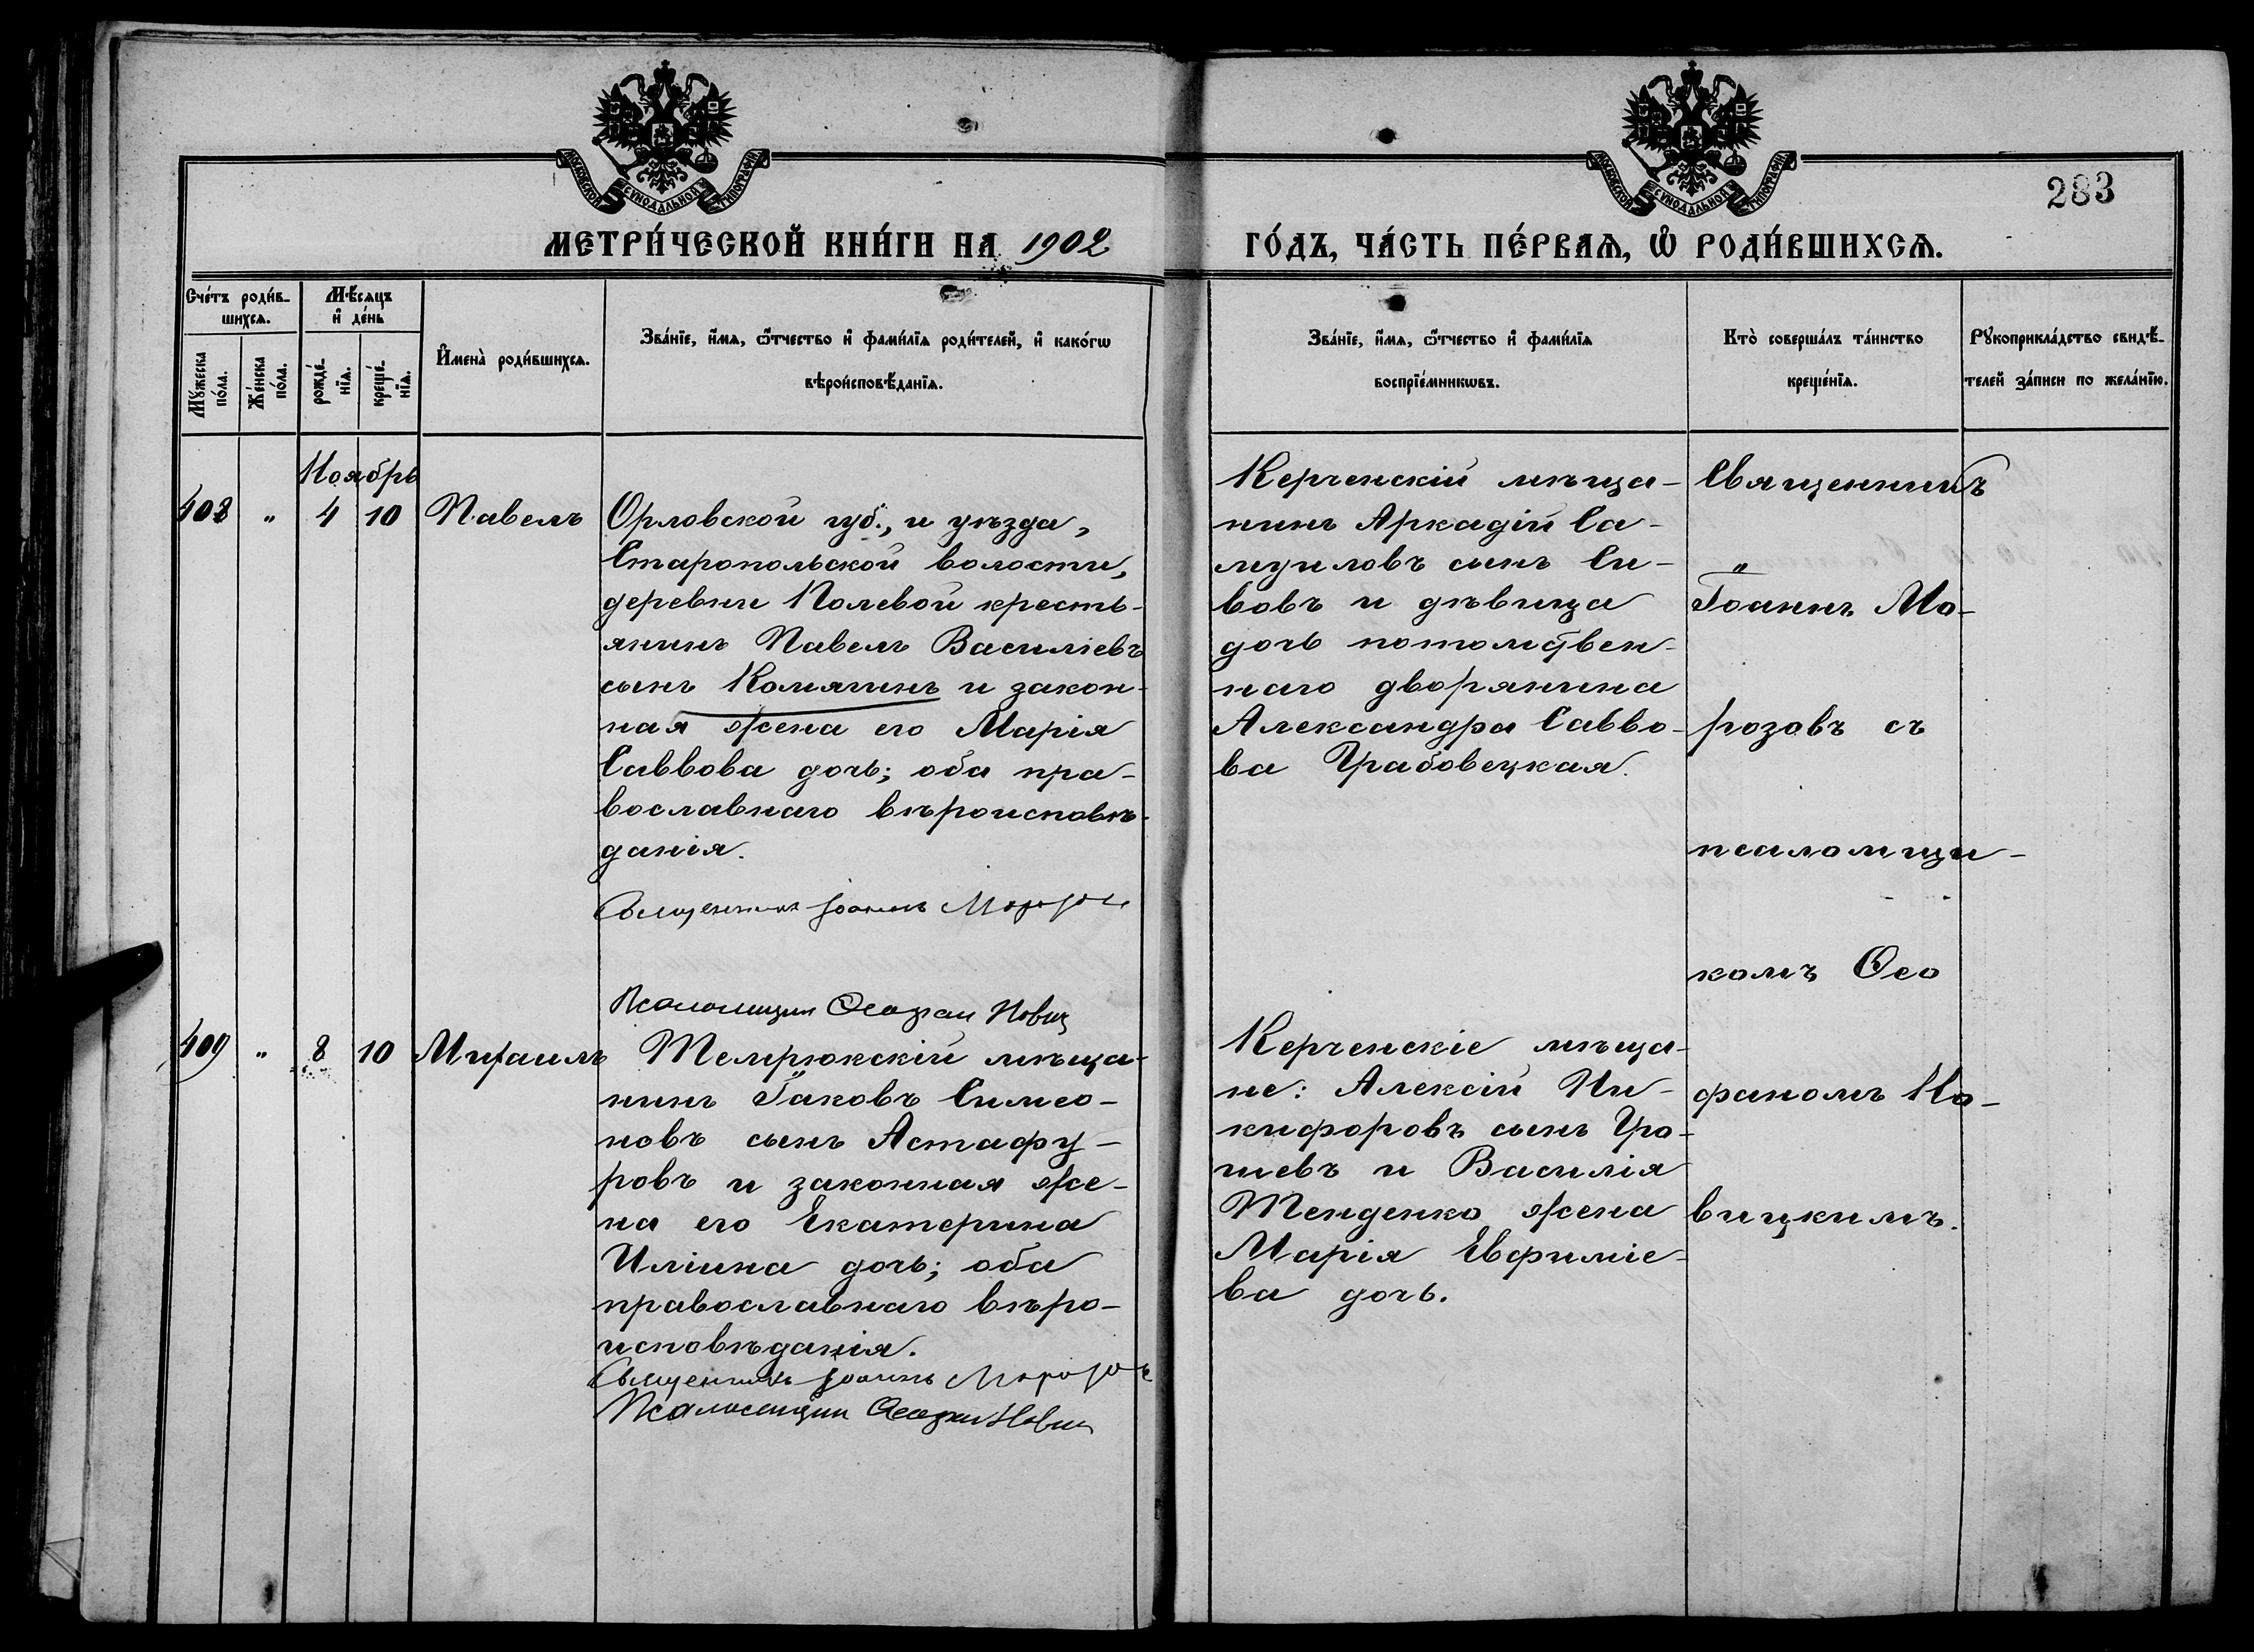 МОСКОВСКОЙ СѴНОДАЛЬНОЙ ТИПОГРАФІИ
МОСКОВСКОЙ СѴНОДАЛЬНОЙ ТИПОГРАФІИ
283
МЕТРИ́ЧЕСКОЙ КНИ́ГИ НА 1902
ГО́ДЪ, ЧА́СТЬ ПЕ́РВАѦ, Ѿ РОДИ́ВШИХСѦ.
Сче́тъ роди́в-
шихсѧ.
Мѣ́сяцъ
и҆ де́нь
Мꙋ́жеска
по́ла.
Же́нска
по́ла.
рожде́-
нїѧ.
креще́-
нїѧ.
И҆мена̀ роди́вшихсѧ.
Зва́нїе, и҆́мѧ, ѻ҆́тчество и҆ фами́лїѧ роди́телей, и҆ како́гѡ
вѣроисповѣ́данїѧ.
Зва́нїе, и҆́мѧ, ѻ҆́тчество и҆ фами́лїѧ
воспрїе́мникѡвъ.
Кто̀ соверша́лъ та́инство
креще́нїѧ.
Рꙋкоприкла́дство свидѣ́-
телей за́писи по жела́нїю.
Ноябрь
408 " 4 10 Павелъ
Орловской губ., и уѣзда,
Старопольской волости,
деревни Полевой кресть-
янинъ Павелъ Василіевъ
сынъ Комягинъ и закон-
ная жена его Марія
Саввова дочь; оба пра-
вославнаго вѣроисповѣ-
данія.
Священникъ Іоаннъ Морозовъ
Псаломщикъ Ѳеофан Новиц
Керченскій мѣща-
нинъ Аркадій Са-
муиловъ сынъ Си-
вовъ и дѣвица
дочь потомствен-
наго дворянина
Александра Савво-
ва Грабовецкая.
Священникъ
Іоаннъ Мо-
розовъ съ
псаломщи-
комъ Ѳео
фаномъ Но-
вицкимъ.
409 " 8 10 Михаилъ
Темрюкскій мѣща-
нинъ Іаковъ Симео-
новъ сынъ Астафу-
ровъ и законная же-
на его Екатерина
Иліина дочь; оба
православнаго вѣро-
исповѣданія.
Священникъ Іоаннъ Морозовъ
Псаломщик Ѳеофан Новиц
Керченскіе мѣща-
не: Алексій Ни-
кифоровъ сынъ Гро-
шевъ и Василія
Тенденко жена
Марія Евфиміе-
ва дочь.